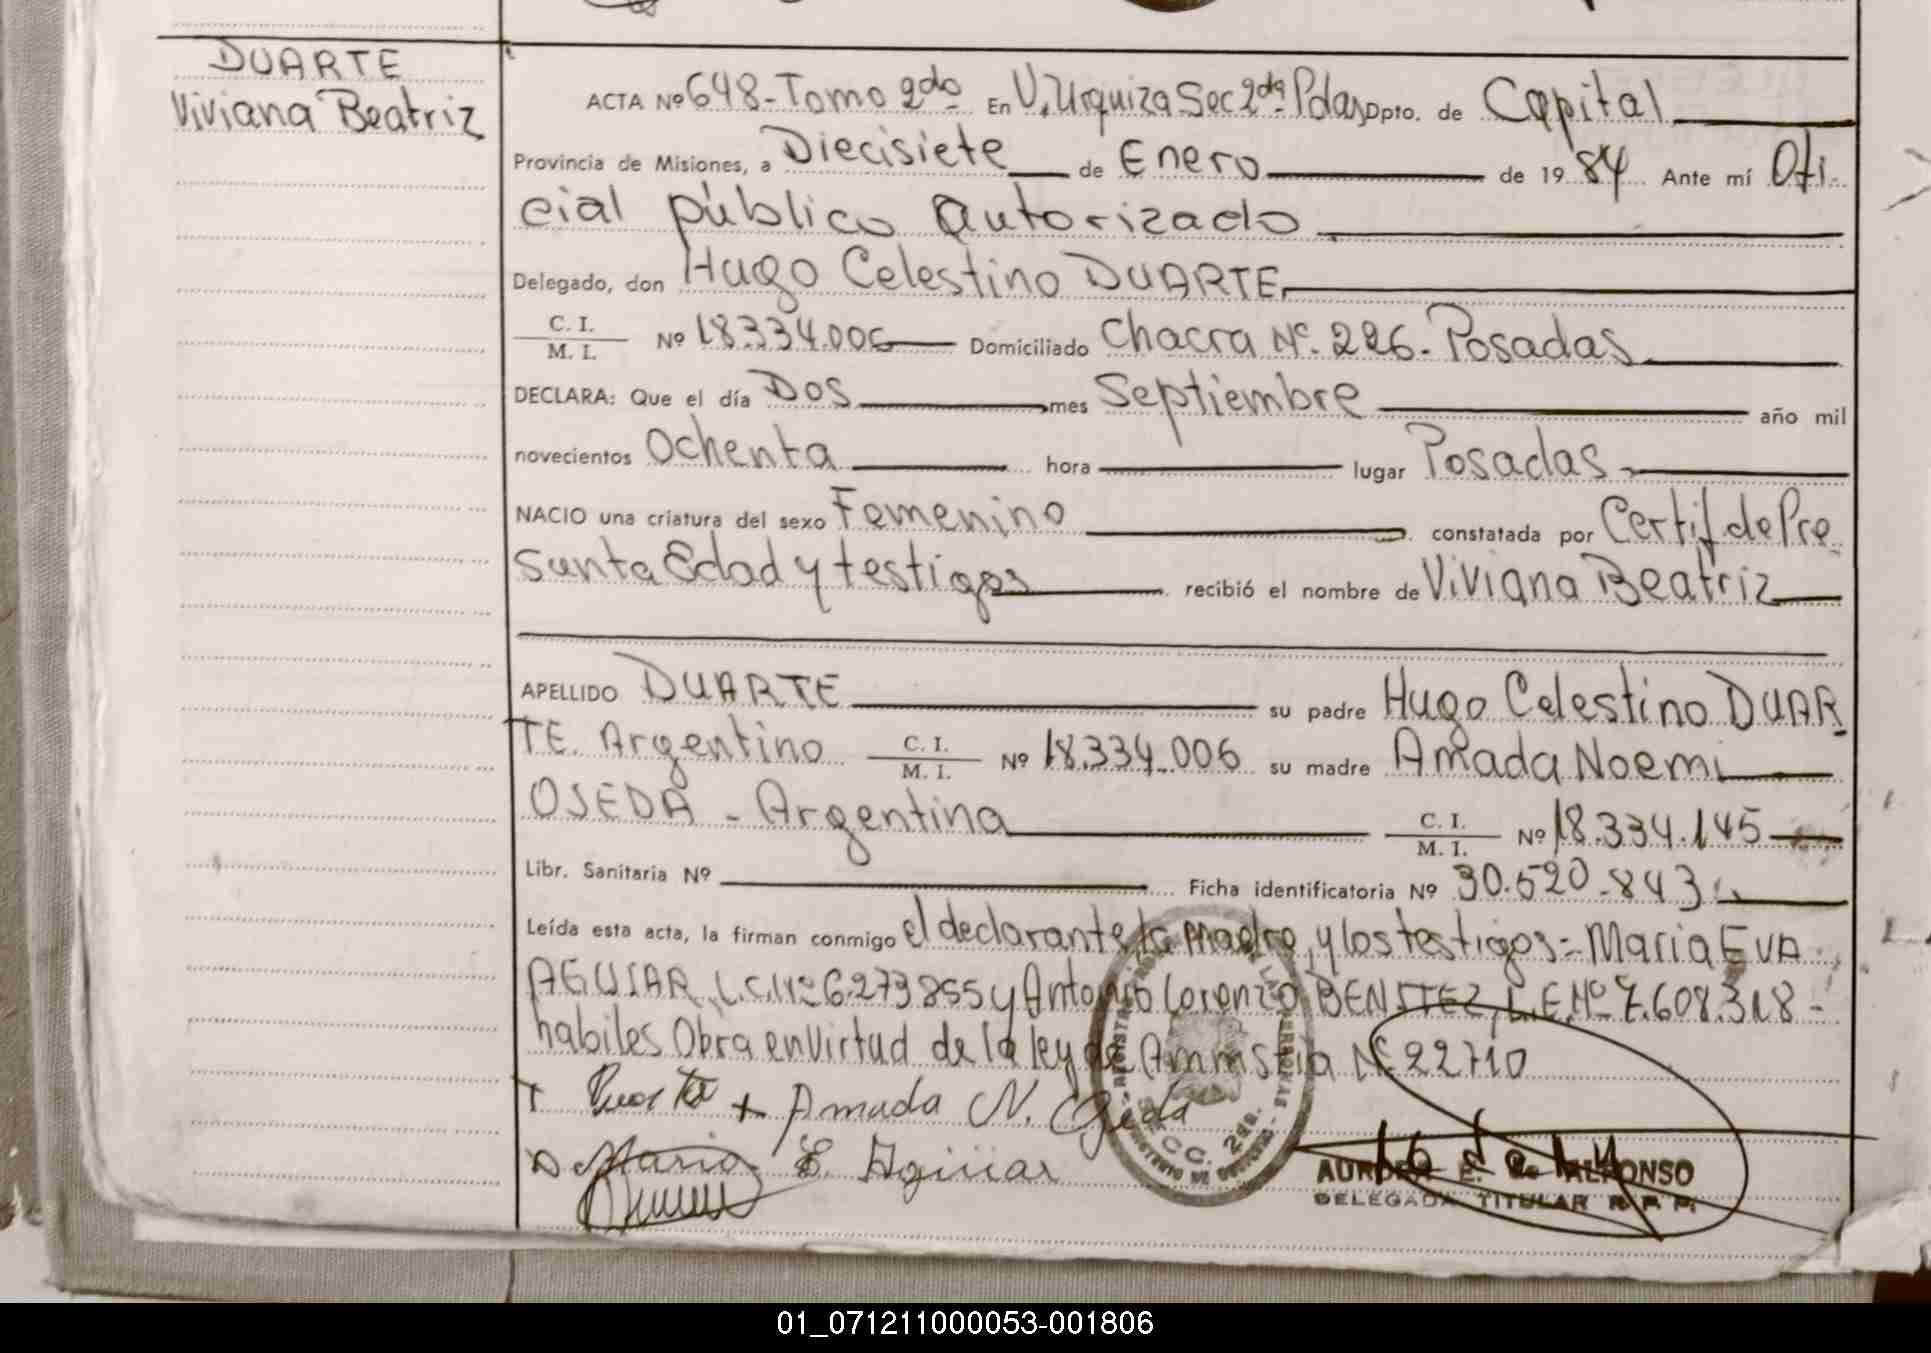 DUARTE
Viviana Beatriz
ACTA Nº 648 - Tomo 2do En V. Urquiza Sec 2da Pdas Dpto. de Capital
Provincia de Misiones, a Diecisiete de Enero de 19 84 Ante mí Ofi-
cial público Autorizado
Delegado, don Hugo Celestino DUARTE
C. I.
M. I. Nº 18.334.006 Domiciliado Chacra Nº. 226. Posadas
DECLARA: Que el día Dos mes Septiembre año mil
novecientos Ochenta hora lugar Posadas
NACIO una criatura del sexo Femenino constatada por Certif. de Pre
sunta Edad y testigos recibió el nombre de Viviana Beatriz
APELLIDO DUARTE su padre Hugo Celestino DUAR
TE. Argentino C. I. M. I. Nº 18.334.006 su madre Amada Noemi
OJEDA - Argentina C. I. M. I. Nº 18.334.145
Libr. Sanitaria Nº Ficha identificatoria Nº 30.520.843
Leída esta acta, la firman conmigo el declarante la madre, y los testigos = Maria EVA
AGUIAR, L.C. Nº 6.273855 y Antonio Lorenzo BENITEZ, L.E. Nº 7.608.318 -
habiles Obra en virtud de la ley de Amnistia Nº 22710
+ Duarte + Amada N. Ojeda
Maria E. Aguiar
AURORA E. de ALFONSO
DELEGADA TITULAR R. P. P.
01_071211000053-001806